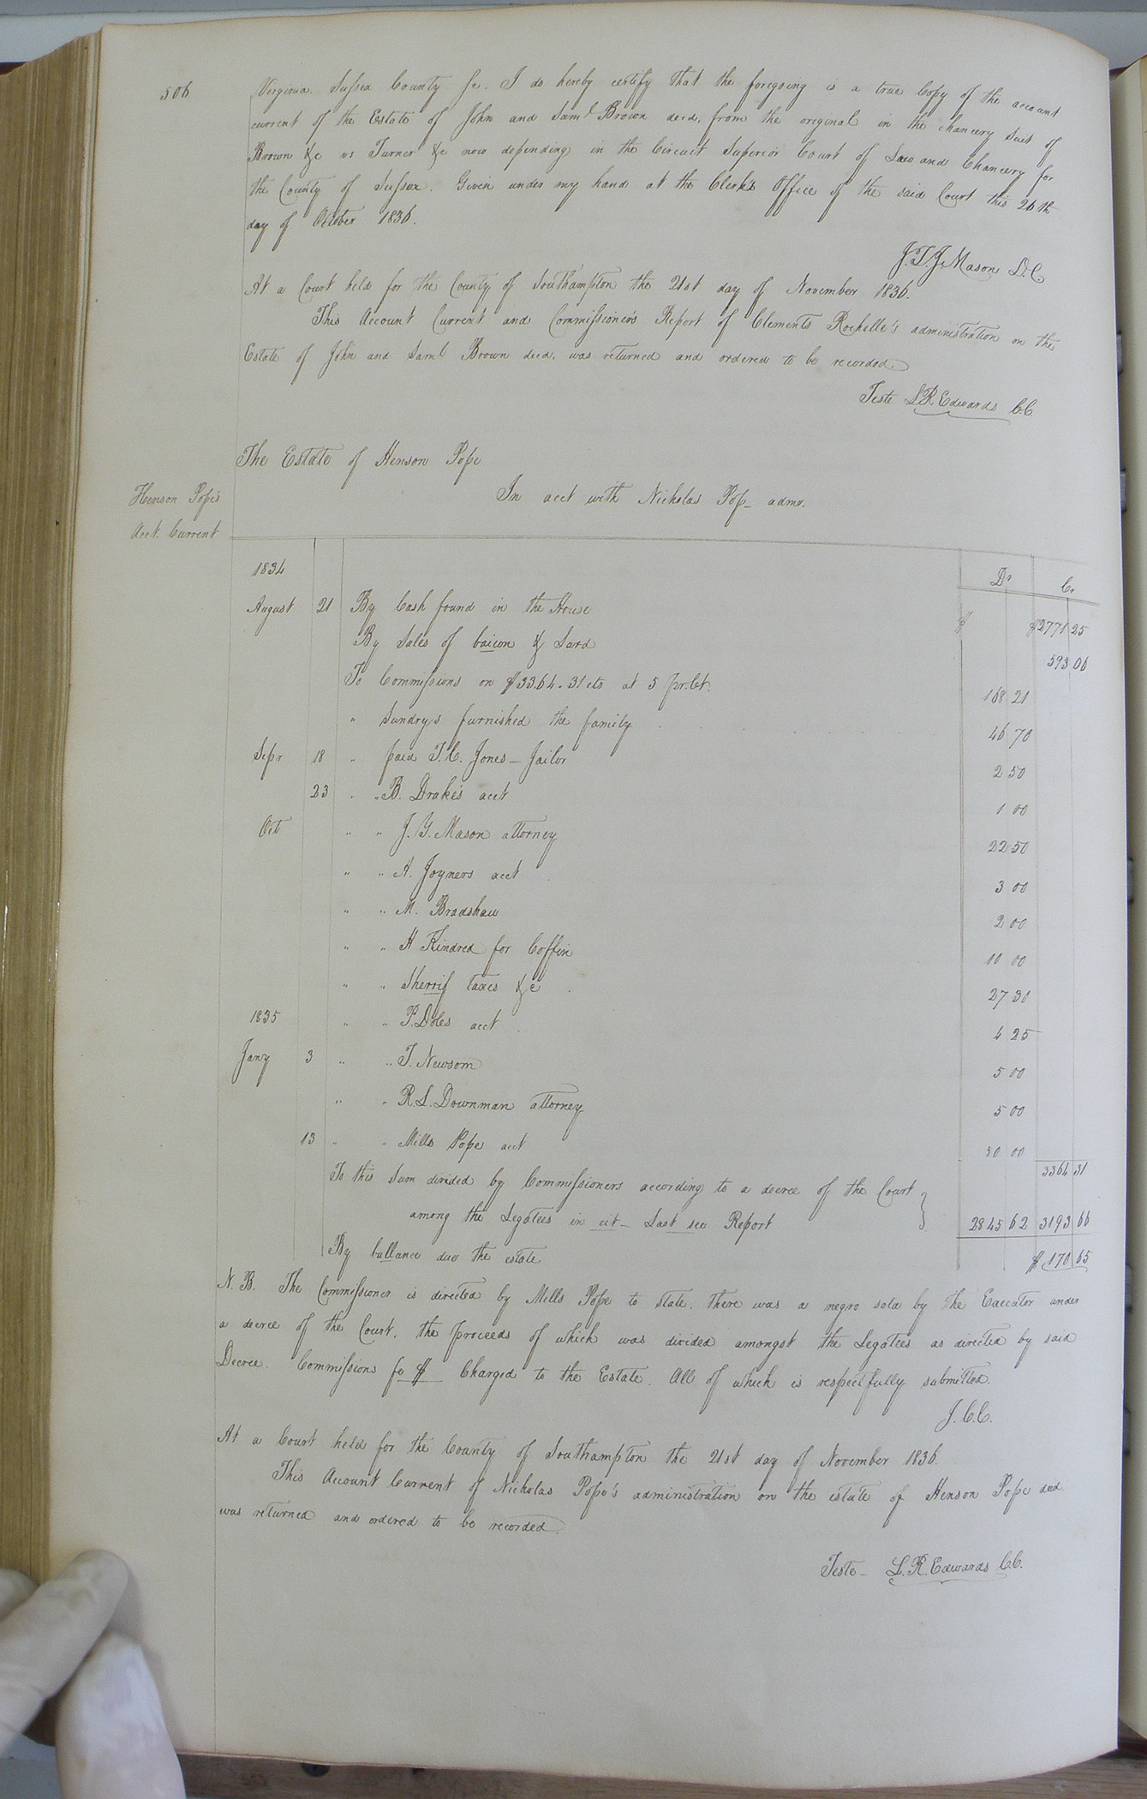 506
Virginia. Sussex County Sc. I do hereby certify that the foregoing is a true Copy of the account
current of the Estate of John and Saml Brown decd. from the original in the chancery suit of
Brown &c vs Turner &c now depending in the Circuit Superior Court of Law and Chancery for
the County of Sussex. Given under my hand at the Clerks Office of the said Court this 26th
day of October 1836.
J.T.J. Mason D.C
At a Court held for the County of Southampton the 21st day of November 1836.
This Account Current and Commissioner's Report of Clements Rochelle's administration on the
Estate of John and Saml Brown decd. was returned and ordered to be recorded
Teste L.R. Edwards C.C
The Estate of Henson Pope
In acct with Nicholas Pop- admr.
Henson Pope's
Acct. Current
Dr Cr
1834
August 21 By Cash found in the House $ $2771 25
By Sales of bacon & Lard 593 06
To Commissions on $3364.31cts at 5 pr.ct. 168 21
" Sundrys furnished the family 46 70
Sepr 18 " paid T.C. Jones - Jailor 2 50
23 " " B. Drake's acct 1 00
Oct " " J.Y. Mason attorney 22 50
" " A. Joyners acct 3 00
" " M. Bradshaw 2 00
" " H Kindred for Coffin 10 00
" " Sherrif taxes &c 27 30
1835 " " P. Doles acct 4 25
Jany 3 " " T. Newsom 5 00
" " R.L. Downman attorney 5 00
13 " " Mills Pope acct 50 00
3364 31
To this Sum divided by Commissioners according to a decree of the Court
among the Legatees in cit- Last see Report 2845 62 3193 66
By ballance due the estate $ 170 65
N.B. The Commissioner is directed by Mills Pope to state. there was a negro sold by the Executor under
a decree of the Court, the proceeds of which was divided amongst the Legatees as directed by said
Decree. Commissions fo $ Charged to the Estate. All of which is respectfully submitted.
J.C.C.
At a Court held for the County of Southampton the 21st day of November 1836
This Account Current of Nicholas Pope's administration on the estate of Henson Pope decd
was returned and ordered to be recorded
Teste- L.R. Edwards C.C.